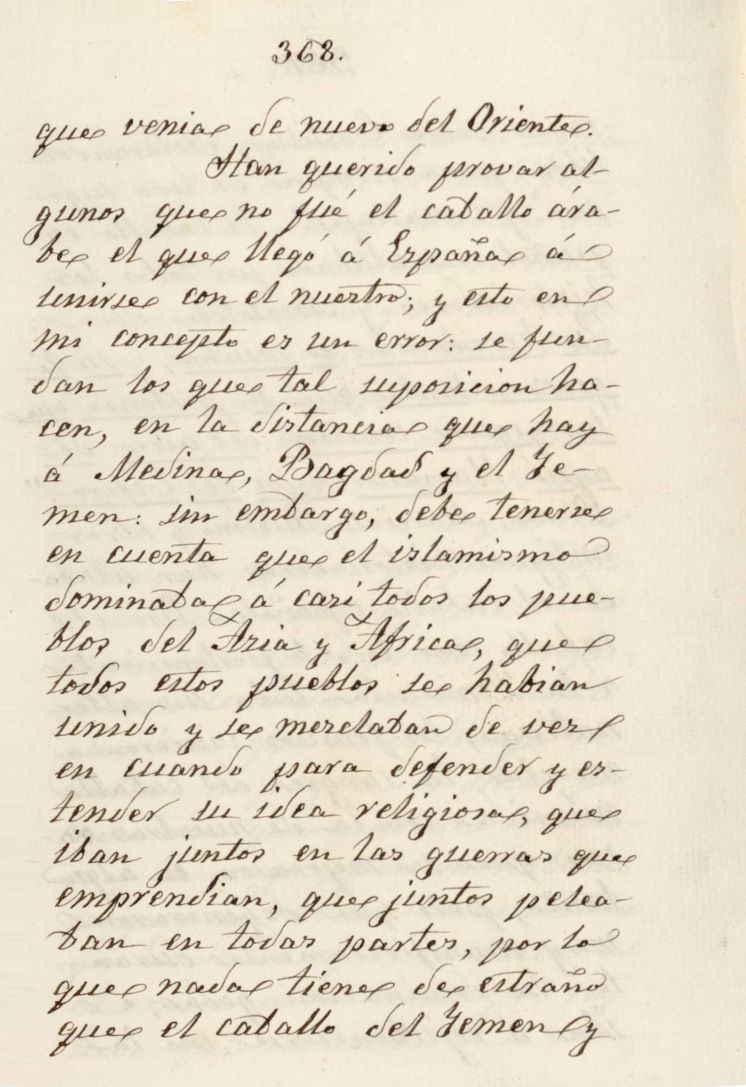 368.
que venia de nuevo del Oriente.
Han querido provar al-
gunos que no fué el caballo ára-
be el que llegó á España á
unirse con el nuestro; y esto en
mi concepto es un error: se fun-
dan los que tal suposicion ha-
cen, en la distancia que hay
á Medina, Bagdad y el Ye-
men: sin embargo, debe tenerse
en cuenta que el islamismo
dominaba á casi todos los pue-
blos del Asia y Africa, que
todos estos pueblos se habian
unido y se mezclaban de vez
en cuando para defender y es-
tender su idea religiosa, que
iban juntos en las guerras que
emprendian, que juntos pelea-
ban en todas partes, por lo
que nada tiene de estraño
que el caballo del Yemen y